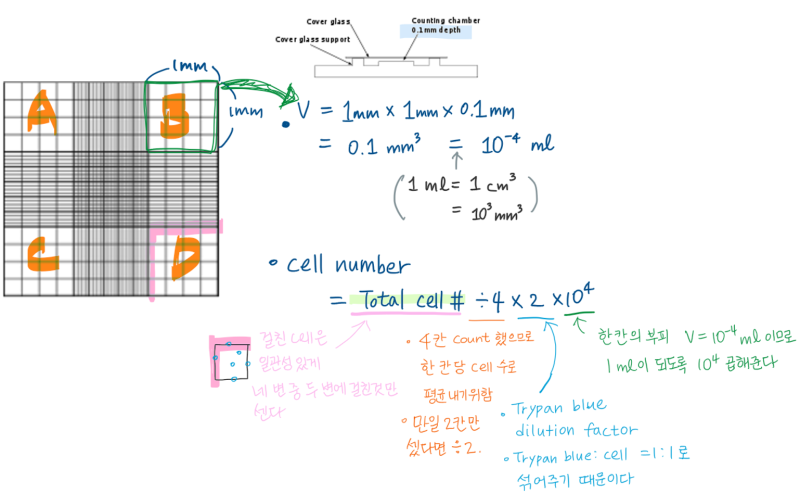 Cover glass
Counting chamber
0.1mm depth
Cover glass support
1mm
1mm
A
B
C
D
• V = 1mm × 1mm × 0.1mm
= 0.1 mm³ = 10⁻⁴ ml
(1 ml = 1 cm³
= 10³mm³)
• cell number
= Total cell # ÷4 × 2 ×10⁴
걸친 cell은
일관성 있게
네 변 중 두 변에 걸친것만
센다
• 4칸 count 했으므로
한 칸당 cell 수로
평균내기위함
• 만일 2칸만
셌다면 ÷2.
• Trypan blue
dilution factor
• Trypan blue : cell = 1:1로
섞어주기 때문이다
한칸의 부피 V = 10⁻⁴ ml 이므로
1ml이 되도록 10⁴ 곱해준다